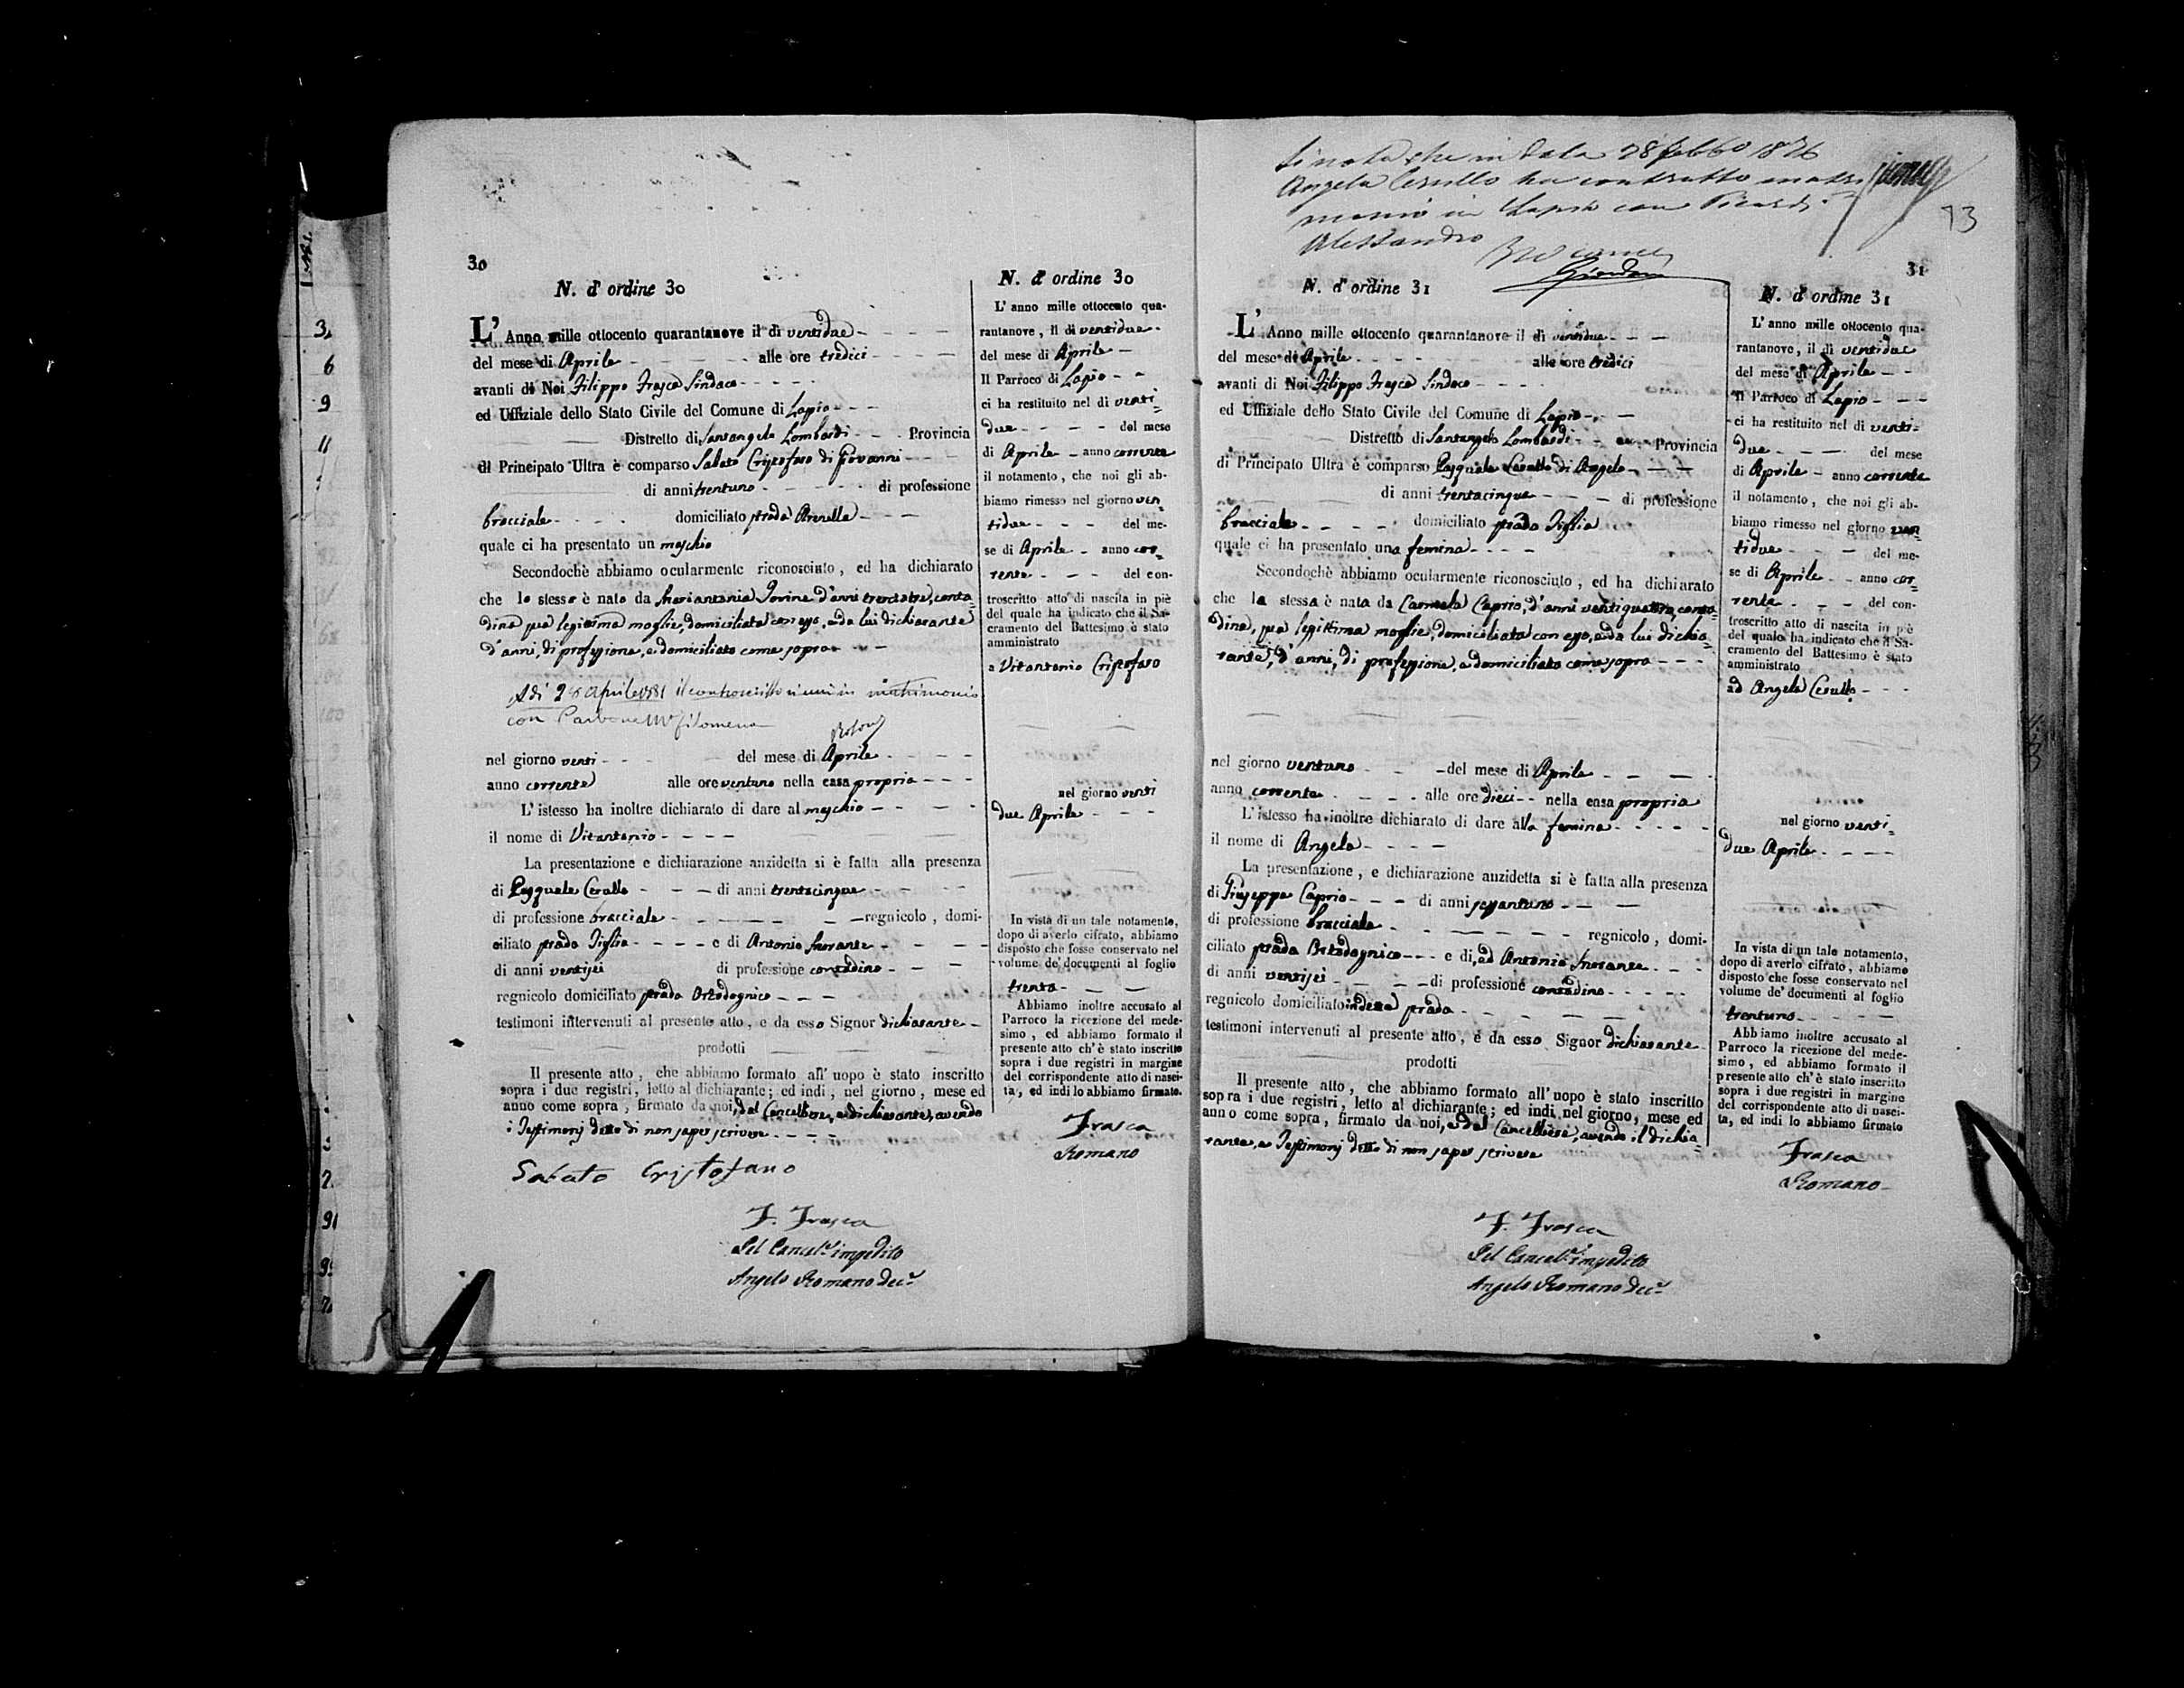 30
N. d' ordine 30
L' Anno mille ottocento quarantanove il dì ventidue
del mese di Aprile alle ore tredici
avanti di Noi Filippo Frasca Sindaco
ed Uffiziale dello Stato Civile del Comune di Lapio
Distretto di Santangelo Lombardi Provincia
di Principato Ultra è comparso Sabato Cristofaro di Giovanni
di anni trentuno di professione
bracciale domiciliato strada Arenella
quale ci ha presentato un maschio
Secondochè abbiamo ocularmente riconosciuto, ed ha dichiarato
che lo stesso è nato da Mariantonia Iovine d'anni trentatre, conta=
dina sua legittima moglie, domiciliata con esso, e da lui dichiarante
d'anni, di professione, e domiciliato come sopra
A dì 28 Aprile 1881 il controscritto si unì in matrimonio
con Carbone Mª Filomena
nel giorno venti del mese di Aprile
anno corrente alle ore ventuno nella casa propria
L' istesso ha inoltre dichiarato di dare al maschio
il nome di Vitantonio
La presentazione e dichiarazione anzidetta si è fatta alla presenza
di Pasquale Cerullo di anni trentacinque
di professione bracciale regnicolo, domi-
ciliato strada Tiglio e di Antonio Morante
di anni ventisei di professione contadino
regnicolo domiciliato strada Ortodognico
testimoni intervenuti al presente atto, e da esso Signor dichiarante
prodotti
Il presente atto, che abbiamo formato all' uopo è stato inscritto
sopra i due registri, letto al dichiarante; ed indi, nel giorno, mese ed
anno come sopra, firmato da noi, dal Cancelliere, e dichiarante, avendo
i Testimonj detto di non saper scrivere
Sabato Cristofano
F. Frasca
Pel Cancel.e impedito
Angelo Romano Dec.e
N. d' ordine 30
L' anno mille ottocento qua-
rantanove, il dì ventidue
del mese di Aprile
Il Parroco di Lapio
ci ha restituito nel dì venti=
due del mese
di Aprile anno corrente
il notamento, che noi gli ab-
biamo rimesso nel giorno ven
tidue del me-
se di Aprile anno cor=
rente del con-
troscritto atto di nascita in piè
del quale ha indicato che il Sa-
cramento del Battesimo è stato
amministrato
a Vitantonio Cristofaro
nel giorno venti
due Aprile
In vista di un tale notamento,
dopo di averlo cifrato, abbiamo
disposto che fosse conservato nel
volume de' documenti al foglio
trenta
Abbiamo inoltre accusato al
Parroco la ricezione del mede-
simo, ed abbiamo formato il
presente atto ch' è stato inscritto
sopra i due registri in margine
del corrispondente atto di nasci-
ta, ed indi lo abbiamo firmato.
Frasca
Romano
Si nota che in data 28 Febb.o 1876
Angela Cerullo ha contratto matri
monio in Lapio con Picardi
Alessandro
Giordano
13
31
N. d' ordine 31
L' Anno mille ottocento quarantanove il dì ventidue
del mese di Aprile alle ore tredici
avanti di Noi Filippo Frasca Sindaco
ed Uffiziale dello Stato Civile del Comune di Lapio
Distretto di Santangelo Lombardi Provincia
di Principato Ultra è comparso Pasquale Cerullo di Angelo
di anni trentacinque di professione
bracciale domiciliato strada Tiglio
quale ci ha presentato una femina
Secondochè abbiamo ocularmente riconosciuto, ed ha dichiarato
che la stessa è nata da Carmela Caprio, d'anni ventiquattro, conta=
dina, sua legittima moglie, domiciliata con esso, e da lui dichia=
rante, d'anni, di professione, e domiciliato come sopra
nel giorno ventuno del mese di Aprile
anno corrente alle ore dieci nella casa propria
L' istesso ha inoltre dichiarato di dare alla femina
il nome di Angela
La presentazione, e dichiarazione anzidetta si è fatta alla presenza
di Giuseppe Caprio di anni sessantuno
di professione bracciale regnicolo, domi-
ciliato strada Ortodognico e di, ad Antonio Morante
di anni ventisei di professione contadino
regnicolo domiciliato indetta strada
testimoni intervenuti al presente atto, e da esso Signor dichiarante
prodotti
Il presente atto, che abbiamo formato all' uopo è stato inscritto
sopra i due registri, letto al dichiarante; ed indi, nel giorno, mese ed
anno come sopra, firmato da noi, e dal Cancelliere, avendo il dichia=
rante, e Testimonj detto di non saper scrivere
F. Frasca
Pel Cancel.e impedito
Angelo Romano Dec.e
N. d' ordine 31
L' anno mille ottocento qua-
rantanove, il dì ventidue
del mese di Aprile
Il Parroco di Lapio
ci ha restituito nel dì venti=
due del mese
di Aprile anno corrente
il notamento, che noi gli ab-
biamo rimesso nel giorno ven
tidue del me-
se di Aprile anno cor=
rente del con-
troscritto atto di nascita in piè
del quale ha indicato che il Sa-
cramento del Battesimo è stato
amministrato
ad Angela Cerullo
nel giorno venti=
due Aprile
In vista di un tale notamento,
dopo di averlo cifrato, abbiamo
disposto che fosse conservato nel
volume de' documenti al foglio
trentuno
Abbiamo inoltre accusato al
Parroco la ricezione del mede-
simo, ed abbiamo formato il
presente atto ch' è stato inscritto
sopra i due registri in margine
del corrispondente atto di nasci-
ta, ed indi lo abbiamo firmato
Frasca
Romano